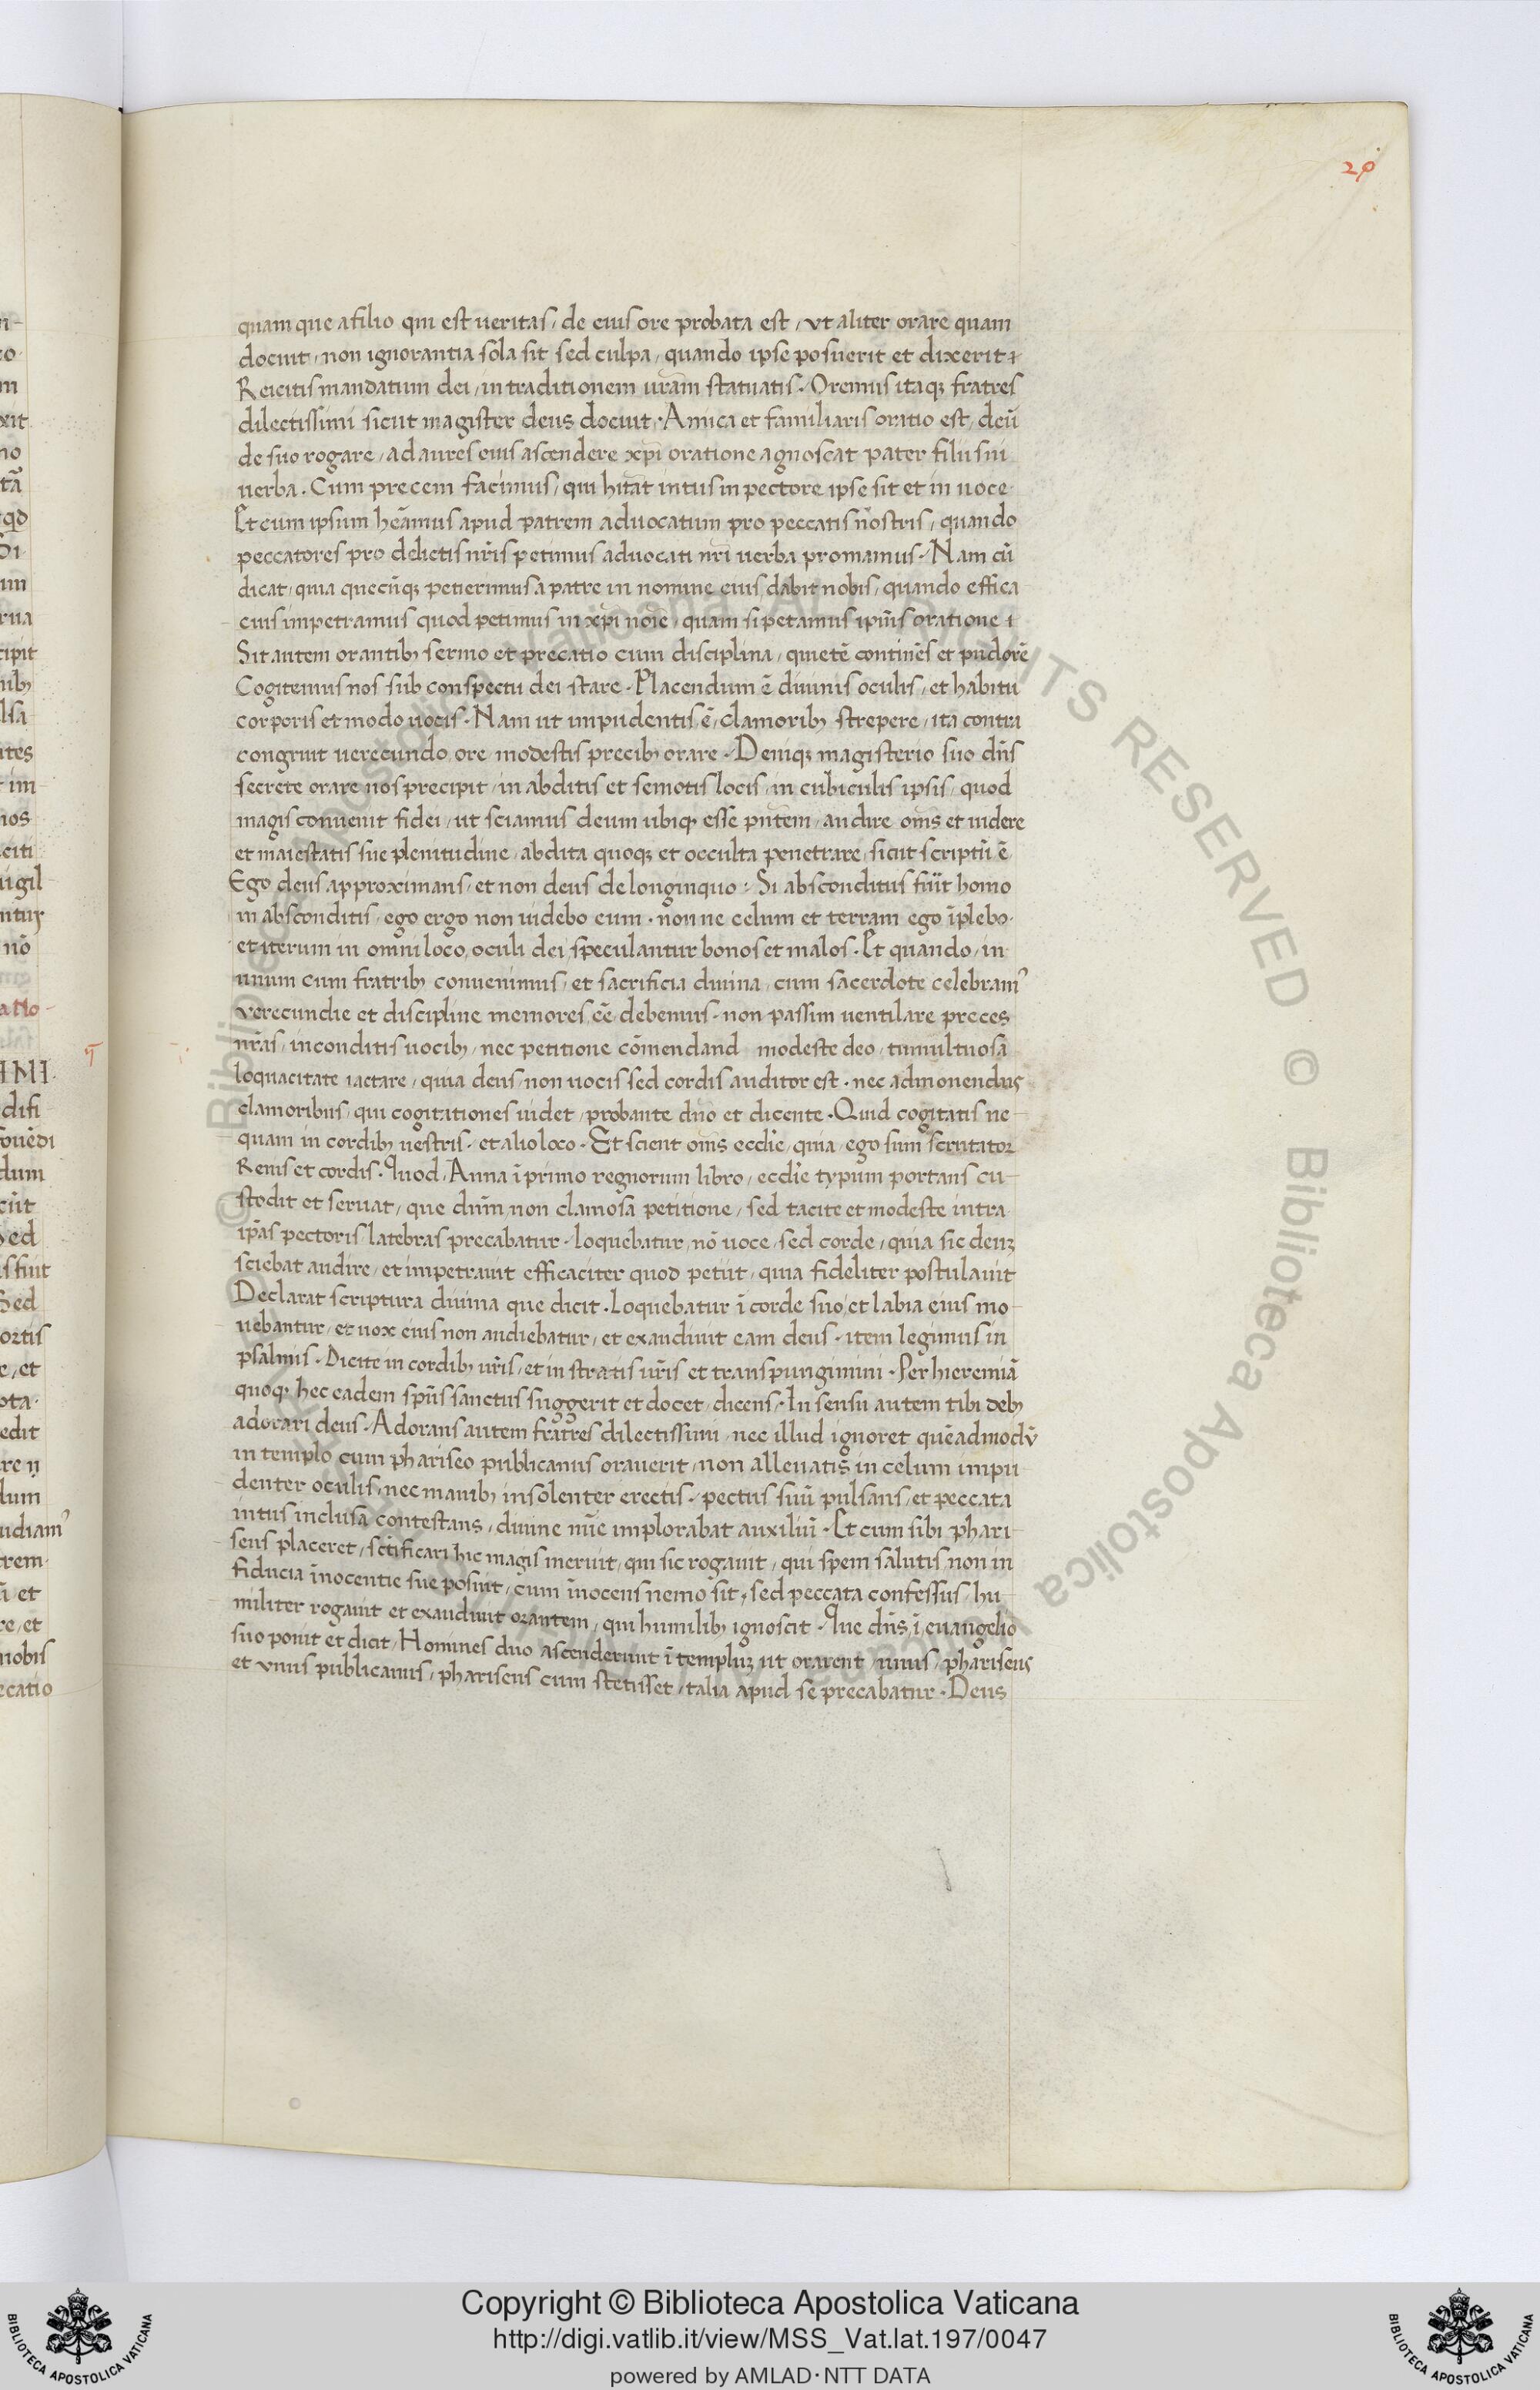 29
quam que a filio qui est ueritas, de eius ore probata est, vt aliter orare quam
docuit, non ignorantia sola sit sed culpa, quando ipse posuerit et dixerit.
Reicitis mandatum dei, in traditionem ur̄am statuatis. Oremus itaqꝫ fratres
dilectissimi sicut magister deus docuit. Amica et familiaris oratio est, deū
de suo rogare, ad aures eius ascendere xp̄i oratione agnoscat pater filii sui
uerba. Cum precem facimus, qui hītat intus in pectore ipse sit et in uoce
Et cum ipsum heāmus apud patrem aduocatum pro peccatis nostris, quando
peccatores pro delictis nr̄is petimus aduocati nr̄i uerba promamus. Nam cū
dicat, quia quecūqꝫ petierimus a patre in nomine eius dabit nobis, quando effica
cius impetramus quod petimus in xp̄i noīe, quam si petamus ipīus oratione
Sit autem orantibꝫ sermo et precatio cum disciplina, quietē continēs et pudorē
Cogitemus nos sub conspectu dei stare. Placendum ē diuinis oculis, et habitu
corporis et modo uocis. Nam ut impudentis ē, clamoribꝫ strepere, ita contra
congruit uerecundo, ore modestis precibꝫ orare. Deniqꝫ magisterio suo dn̄s
secrete orare nos precipit, in abditis et semotis locis, in cubiculis ipsis, quod
magis conuenit fidei, ut sciamus deum ubiqꝫ esse pn̄tem, audire om̄s et uidere
et maiestatis sue plenitudine, abdita quoqꝫ et occulta penetrare, sicut scriptū ē
Ego deus approximans, et non deus de longinquo. Si absconditus fuit homo
in absconditis, ego ergo non uidebo eum. nonne celum et terram ego īplebo.
et iterum in omni loco, oculi dei speculantur bonos et malos. Et quando, in
unum cum fratribꝫ conuenimus, et sacrificia diuina, cum sacerdote celebramꝰ
verecundie et discipline memores eē debemus. non passim uentilare preces
nr̄as, inconditis uocibꝫ, nec petitione cōmendand modeste deo, tumultuosa
loquacitate iactare, quia deus, non uocis sed cordis auditor est. nec admonendus
clamoribus, qui cogitationes uidet, probante dn̄o et dicente. Quid cogitatis ne
quam in cordibꝫ uestris. et alio loco. Et scient om̄s eccl̄ie, quia, ego sum scrutator
Renis et cordis. Quod, Anna ī primo regnorum libro, eccl̄ie typum portans cu
stodit et seruat, que dn̄m non clamosa petitione, sed tacite et modeste intra
ip̄as pectoris latebras precabatur. loquebatur, nō uoce, sed corde, quia sic deuꝫ
sciebat audire, et impetrauit efficaciter quod petiit, quia fideliter postulauit
Declarat scriptura diuina que dicit. Loquebatur ī corde suo, et labia eius mo
uebantur, et uox eius non audiebatur, et exaudiuit eam deus. item legimus in
psalmis. Dicite in cordibꝫ ur̄is, et in stratis ur̄is et transpungimini. Per hieremiā
quoqꝫ hec eadem sp̄us sanctus suggerit et docet, dicens. In sensu autem tibi debꝫ
adorari deus. Adorans autem fratres dilectissimi, nec illud ignoret quēadmodū
in templo cum phariseo publicanus orauerit, non alleuatis in celum impu
denter oculis, nec manibꝫ insolenter erectis. pectus suū pulsans, et peccata
intus inclusa contestans, diuine mīe implorabat auxiliū. Et cum sibi phari
seus placeret, sc̄tificari hic magis meruit, qui sic rogauit, qui spem salutis non in
fiducia īnocentie sue posuit, cum īnocens nemo sit, sed peccata confessus, hu
militer rogauit et exaudiuit orantem, qui humilibꝫ ignoscit. Que dn̄s ī euangelio
suo ponit et dicit, Homines duo ascenderunt ī templuꝫ ut orarent, unus, phariseus
et vnus publicanus, phariseus cum stetisset, talia apud se precabatur. Deus
Copyright © Biblioteca Apostolica Vaticana
http://digi.vatlib.it/view/MSS_Vat.lat.197/0047
powered by AMLAD·NTT DATA